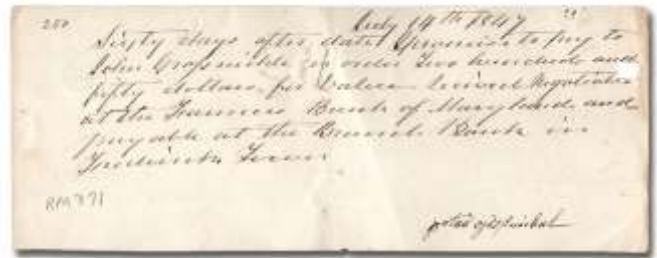 250 July 14th 1847
Sixty days after date I promise to pay to
John Grossnickle or order Two hundred and
fifty dollars for Value Received Negotiable
at the Farmers Bank of Maryland and
payable at the Branch Bank in
Frederick Town
RPM 771